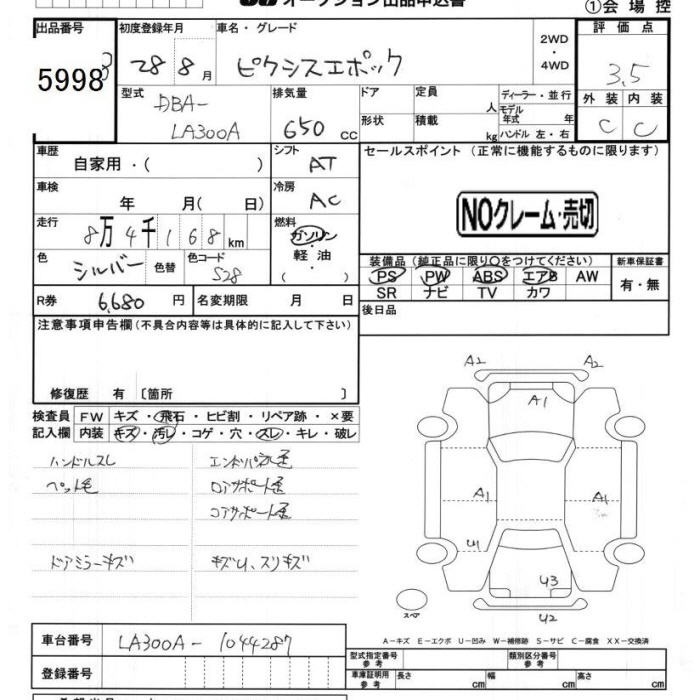 オークション出品申込書
①会場控
出品番号 初度登録年月 車名・グレード 2WD ・ 4WD 評価点
5998 28 8月 ピクシスエポック 3.5
型式 DBA-LA300A 排気量 650 cc ドア 定員 人 ディーラー・並行
外装 内装
モデル年式 年
形状 積載 kg ハンドル 左・右 C C
車歴 自家用・( ) シフト AT セールスポイント(正常に機能するものに限ります)
車検 年 月( 日) 冷房 AC
NOクレーム・売切
走行 8万4千168km 燃料 ガソリン・軽油・( )
色 シルバー 色替 色コード S28
装備品(純正品に限り○をつけてください) 新車保証書
PS PW ABS エアB AW 有・無
SR ナビ TV カワ
R券 6,680円 名変期限 月 日
後日品
注意事項申告欄(不具合内容等は具体的に記入して下さい)
修復歴 有〔箇所 〕
検査員 FW キズ・飛石・ヒビ割・リペア跡・×要
記入欄 内装 キズ・汚レ・コゲ・穴・スレ・キレ・破レ
ハンドルスレ エンドパネル歪
ペット毛 ロアサポート歪
コアサポート歪
ドアミラーキズ キズU、スリキズ
A2 A2
A1
A1 A1
U1
U3
U2
スペア
A-キズ E-エクボ U-凹み W-補修跡 S-サビ C-腐食 XX-交換済
車台番号 LA300A-1044287
型式指定番号 参考 類別区分番号 参考
登録番号
車庫証明用 参考 長さ cm 幅 cm 高さ cm